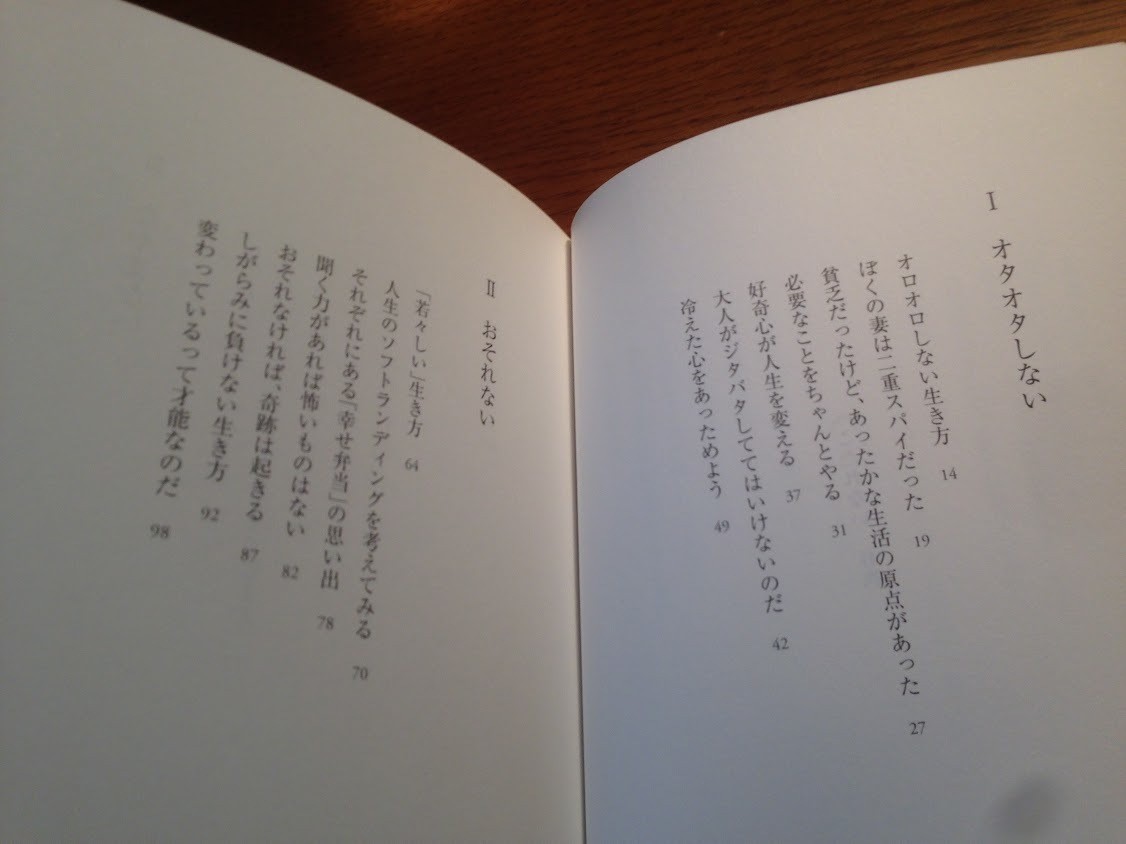 Ⅰ オタオタしない
オロオロしない生き方 14
ぼくの妻は二重スパイだった 19
貧乏だったけど、あったかな生活の原点があった 27
必要なことをちゃんとやる 31
好奇心が人生を変える 37
大人がジタバタしててはいけないのだ 42
冷えた心をあっためよう 49
Ⅱ おそれない
「若々しい」生き方 64
人生のソフトランディングを考えてみる 70
それぞれにある「幸せ弁当」の思い出 78
聞く力があれば怖いものはない 82
おそれなければ、奇跡は起きる 87
しがらみに負けない生き方 92
変わっているって才能なのだ 98